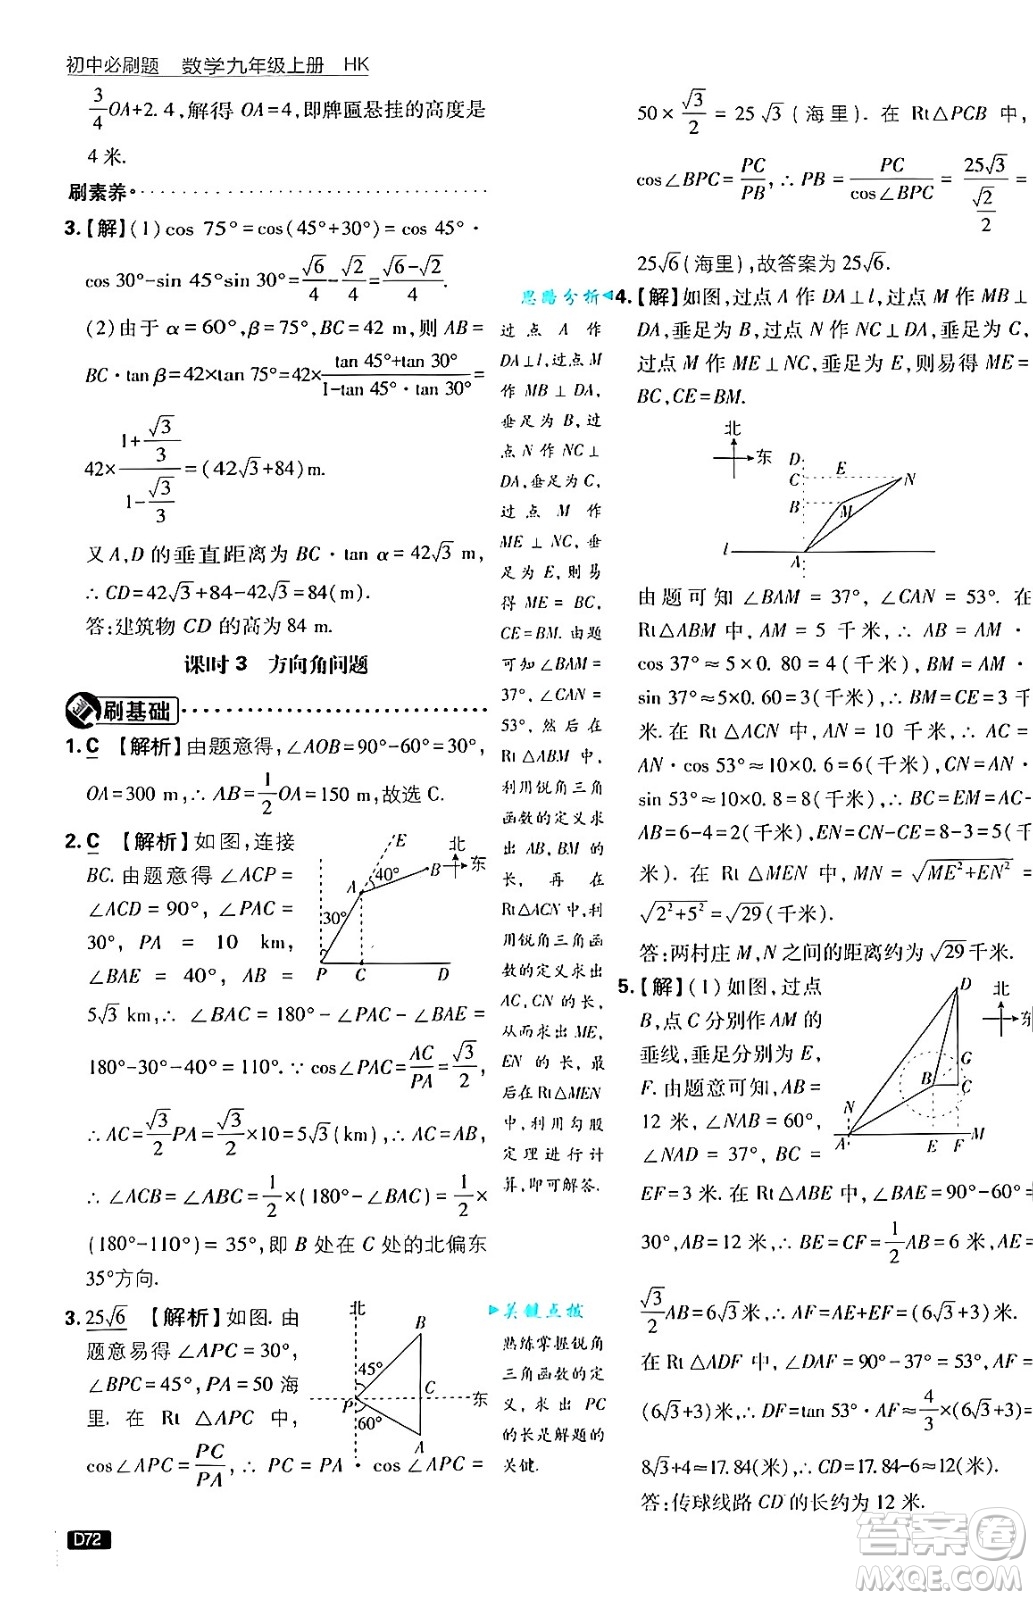 初中必刷题 数学九年级上册 HK
3/4 OA+2.4,解得 OA=4,即牌匾悬挂的高度是
4 米.
刷素养
3.【解】(1)cos 75°=cos(45°+30°)=cos 45°·
cos 30°-sin 45°sin 30°=√6/4-√2/4=(√6-√2)/4.
(2)由于 α=60°,β=75°,BC=42 m,则 AB=
BC·tan β=42×tan 75°=42×(tan 45°+tan 30°)/(1-tan 45°·tan 30°)=
42×(1+√3/3)/(1-√3/3)=(42√3+84)m.
又 A,D 的垂直距离为 BC·tan α=42√3 m,
∴CD=42√3+84-42√3=84(m).
答:建筑物 CD 的高为 84 m.
课时 3 方向角问题
刷基础
1.C 【解析】由题意得,∠AOB=90°-60°=30°,
OA=300 m,∴AB=1/2 OA=150 m,故选 C.
2.C 【解析】如图,连接
BC.由题意得∠ACP=
∠ACD=90°,∠PAC=
30°,PA=10 km,
∠BAE=40°,AB=
5√3 km,∴∠BAC=180°-∠PAC-∠BAE=
180°-30°-40°=110°.∵cos∠PAC=AC/PA=√3/2,
∴AC=√3/2 PA=√3/2×10=5√3(km),∴AC=AB,
∴∠ACB=∠ABC=1/2×(180°-∠BAC)=1/2×
(180°-110°)=35°,即 B 处在 C 处的北偏东
35°方向.
E
北
东
40°
A
B
30°
P
C
D
3.25√6 【解析】如图.由
题意易得∠APC=30°,
∠BPC=45°,PA=50 海
里.在 Rt△APC 中,
cos∠APC=PC/PA,∴PC=PA·cos∠APC=
北
B
45°
C
东
P
60°
A
D72
思路分析
过点 A 作
DA⊥l,过点 M
作 MB⊥DA,
垂足为 B,过
点 N 作 NC⊥
DA,垂足为 C,
过点 M 作
ME⊥NC,垂
足为 E,则易
得 ME=BC,
CE=BM.由题
可知∠BAM=
37°,∠CAN=
53°,然后在
Rt△ABM 中,
利用锐角三角
函数的定义求
出 AB,BM 的
长,再在
Rt△ACN 中,利
用锐角三角函
数的定义求出
AC,CN 的长,
从而求出 ME,
EN 的长,最
后在Rt△MEN
中,利用勾股
定理进行计
算,即可解答.
关键点拨
熟练掌握锐角
三角函数的定
义,求出 PC
的长是解题的
关键.
50×√3/2=25√3(海里).在 Rt△PCB 中,
cos∠BPC=PC/PB,∴PB=PC/cos∠BPC=25√3/(√2/2)=
25√6(海里),故答案为 25√6.
4.【解】如图,过点 A 作 DA⊥l,过点 M 作 MB⊥
DA,垂足为 B,过点 N 作 NC⊥DA,垂足为 C,
过点 M 作 ME⊥NC,垂足为 E,则易得 ME=
BC,CE=BM.
北
东
D
C
E
N
B
M
l
A
由题可知∠BAM=37°,∠CAN=53°.在
Rt△ABM 中,AM=5 千米,∴AB=AM·
cos 37°≈5×0.80=4(千米),BM=AM·
sin 37°≈5×0.60=3(千米),∴BM=CE=3 千
米.在 Rt△ACN 中,AN=10 千米,∴AC=
AN·cos 53°≈10×0.6=6(千米),CN=AN·
sin 53°≈10×0.8=8(千米),∴BC=EM=AC-
AB=6-4=2(千米),EN=CN-CE=8-3=5(千
米).在 Rt△MEN 中,MN=√(ME²+EN²)=
√(2²+5²)=√29(千米).
答:两村庄 M,N 之间的距离约为√29千米.
5.【解】(1)如图,过点
B,点 C 分别作 AM 的
垂线,垂足分别为 E,
F.由题意可知,AB=
12 米,∠NAB=60°,
∠NAD=37°,BC=
EF=3 米.在 Rt△ABE 中,∠BAE=90°-60°=
30°,AB=12 米,∴BE=CF=1/2 AB=6 米,AE=
√3/2 AB=6√3 米,∴AF=AE+EF=(6√3+3)米.
在 Rt△ADF 中,∠DAF=90°-37°=53°,AF=
(6√3+3)米,∴DF=tan 53°·AF≈4/3×(6√3+3)=
8√3+4≈17.84(米),∴CD=17.84-6≈12(米).
答:传球线路 CD 的长约为 12 米.
D
北
东
G
B
C
N
A
E
F
M
答案圈
MXQE.COM